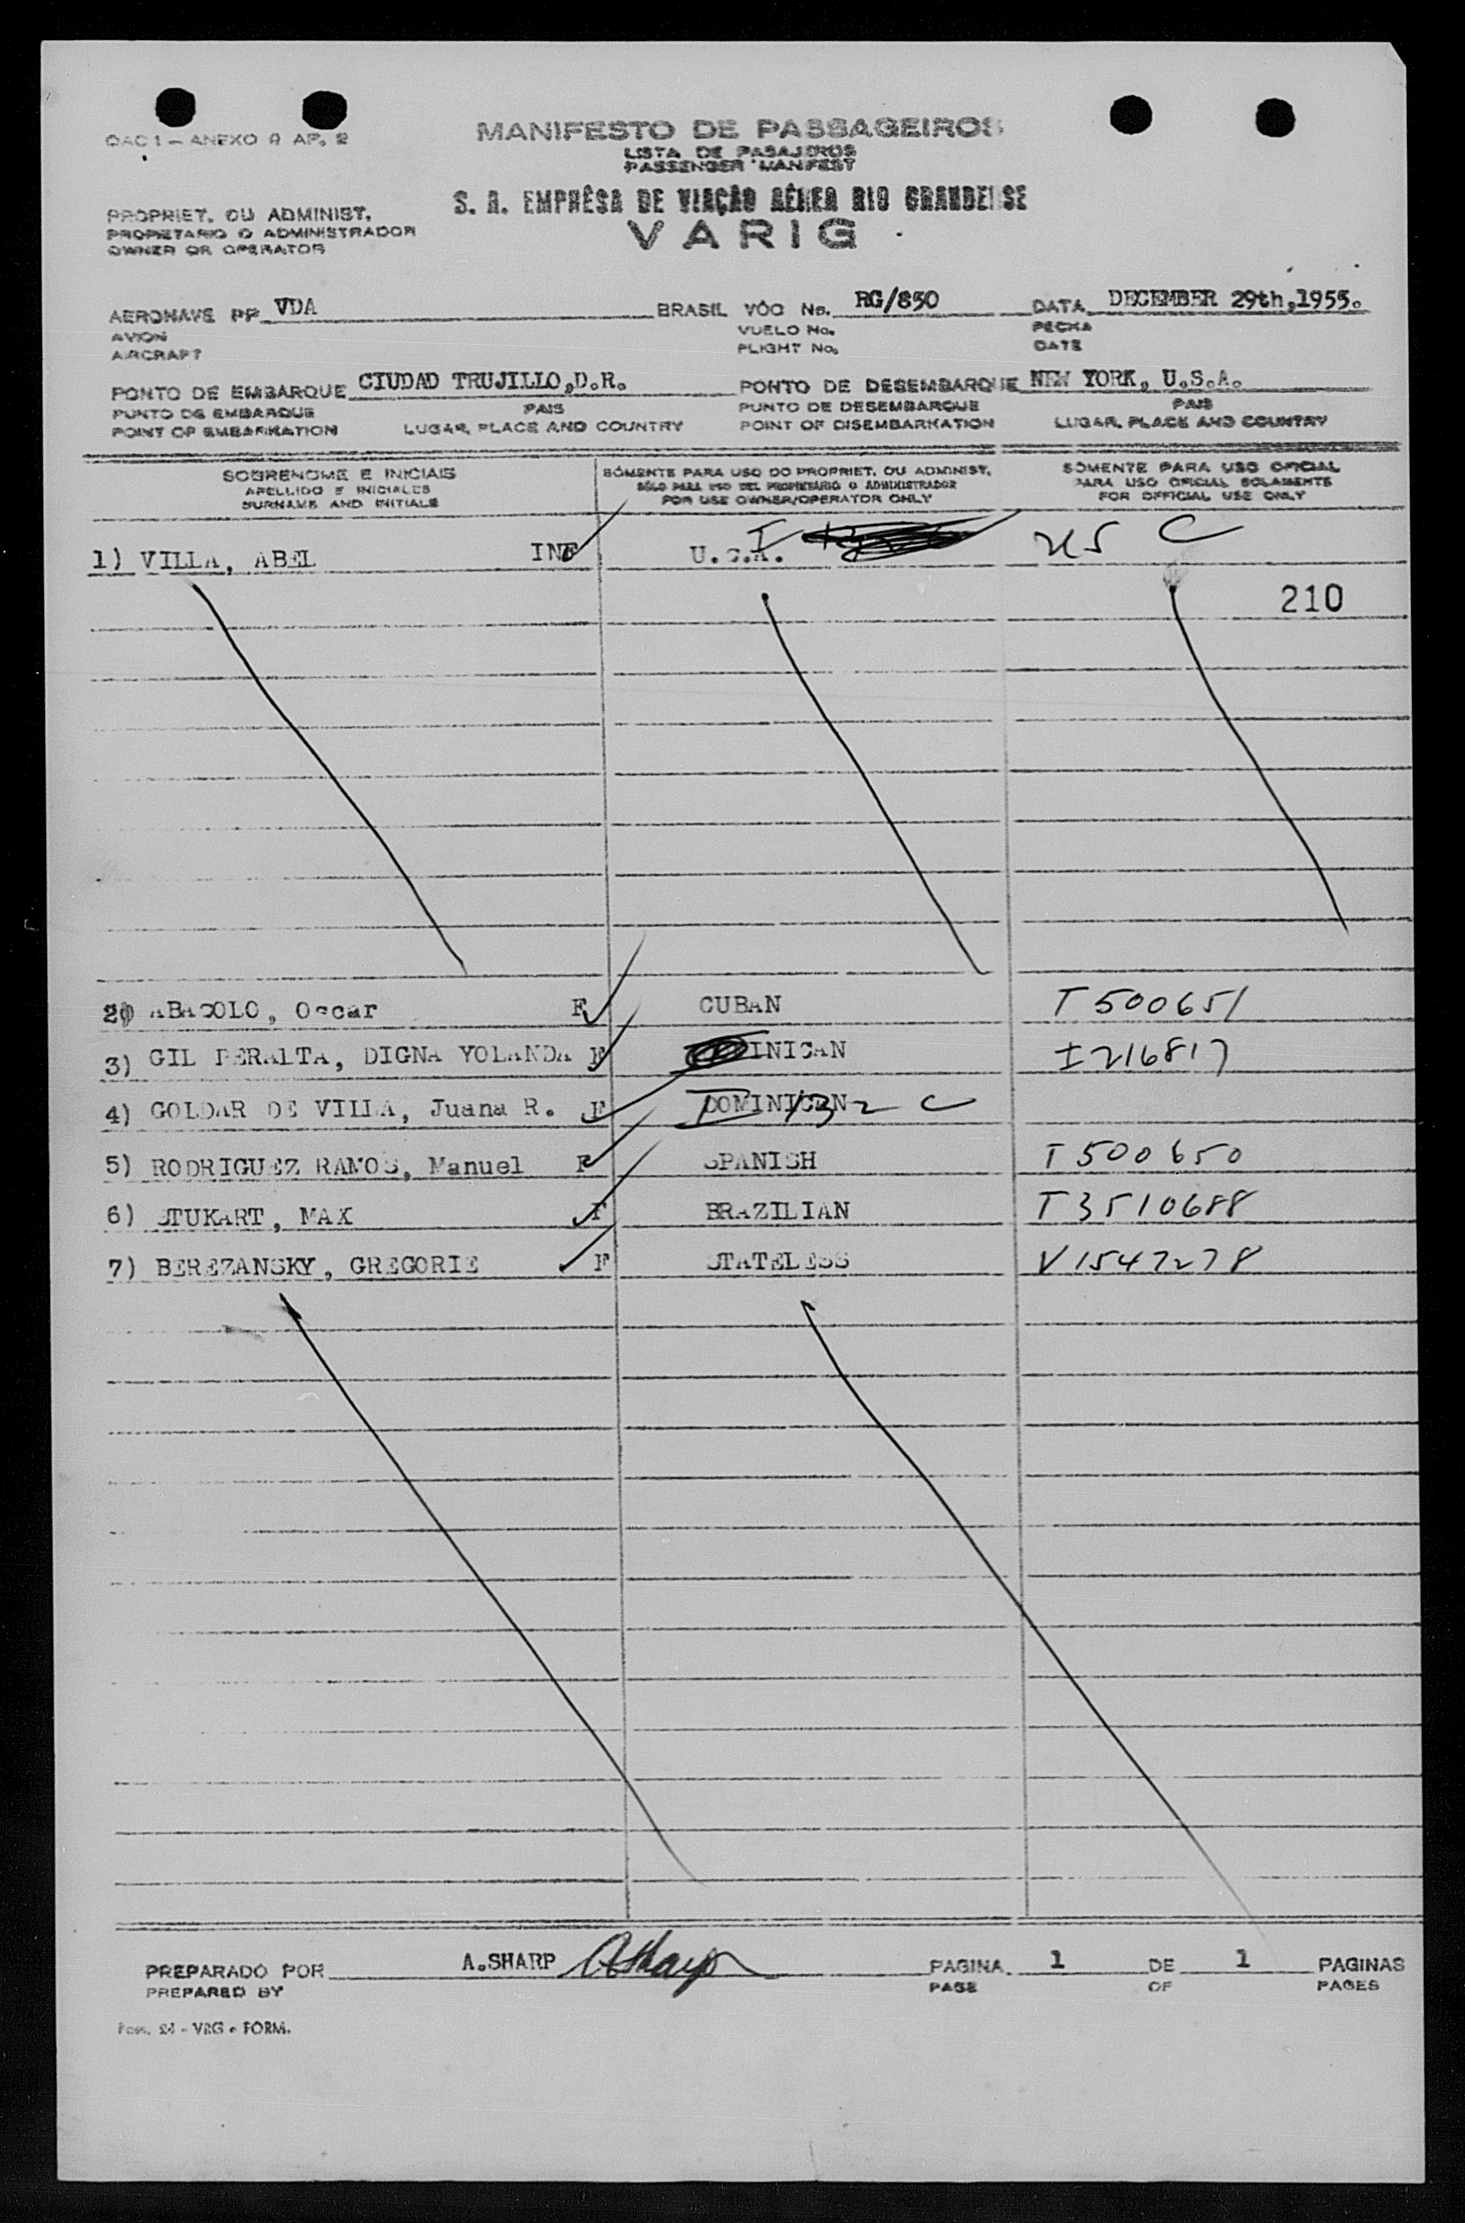 OAC 1 — ANEXO 9 AP. 2
MANIFESTO DE PASSAGEIROS
LISTA DE PASAJEROS
PASSENGER MANIFEST
S. A. EMPRÊSA DE VIAÇÃO AÉREA RIO GRANDENSE
VARIG
PROPRIET. OU ADMINIST.
PROPIETARIO O ADMINISTRADOR
OWNER OR OPERATOR
AERONAVE PP VDA BRASIL VÔO No. RG/850 DATA DECEMBER 29th,1955.
AVION VUELO No. FECHA
AIRCRAFT FLIGHT No. DATE
PONTO DE EMBARQUE CIUDAD TRUJILLO,D.R. PONTO DE DESEMBARQUE NEW YORK, U.S.A.
PUNTO DE EMBARQUE PAIS PUNTO DE DESEMBARQUE PAIS
POINT OF EMBARKATION LUGAR, PLACE AND COUNTRY POINT OF DISEMBARKATION LUGAR, PLACE AND COUNTRY
SOBRENOME E INICIAIS SÒMENTE PARA USO DO PROPRIET. OU ADMINIST. SÒMENTE PARA USO OFICIAL
APELLIDO E INICIALES SÓLO PARA USO DEL PROPIETARIO O ADMINISTRADOR PARA USO OFICIAL SOLAMENTE
SURNAME AND INITIALS FOR USE OWNER/OPERATOR ONLY FOR OFFICIAL USE ONLY
1) VILLA, ABEL INF U.S.A. I US C
210
2) Oscar F CUBAN T 500651
3) GIL PERALTA, DIGNA YOLANDA F INICAN I 216817
4) GOLDAR DE VILLA, Juana R. F DOMINICAN C
5) RODRIGUEZ RAMOS, Manuel F SPANISH T 500650
6) STUKART, MAX F BRAZILIAN T 3510688
7) BEREZANSKY, GREGORIE F STATELESS V 1547278
PREPARADO POR A.SHARP ASharp PAGINA 1 DE 1 PAGINAS
PREPARED BY PAGE OF PAGES
24 - VRG - FORM.